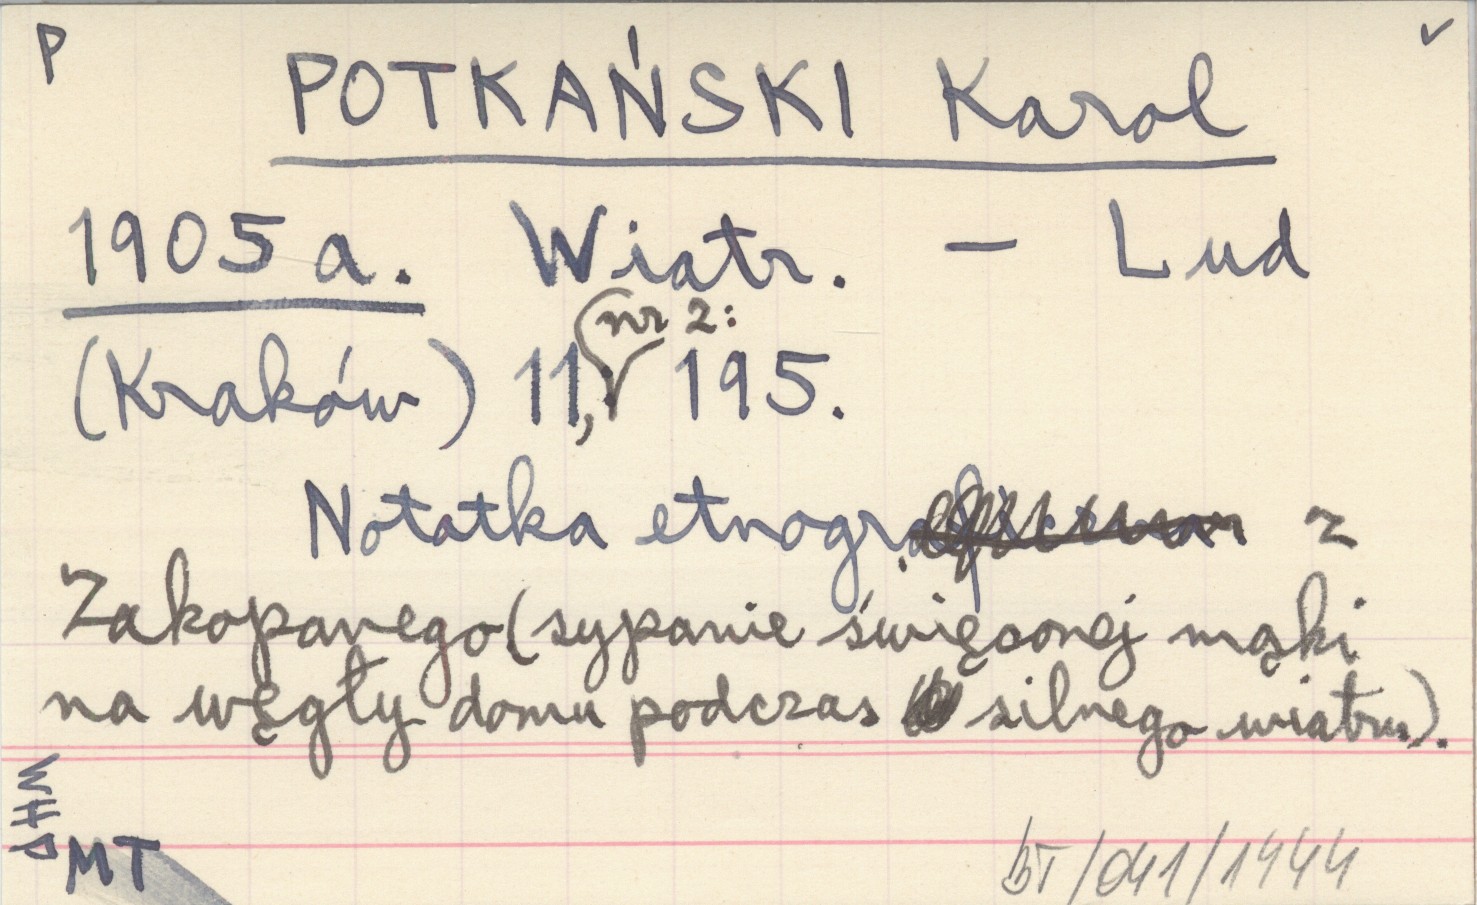 P
POTKAŃSKI Karol
1905 a. Wiatr. – Lud
nr 2:
(Kraków) 11, 195.
Notatka etnogr. z
Zakopanego (sypanie święconej mąki
na węgły domu podczas silnego wiatru).
MT
BT/041/1944